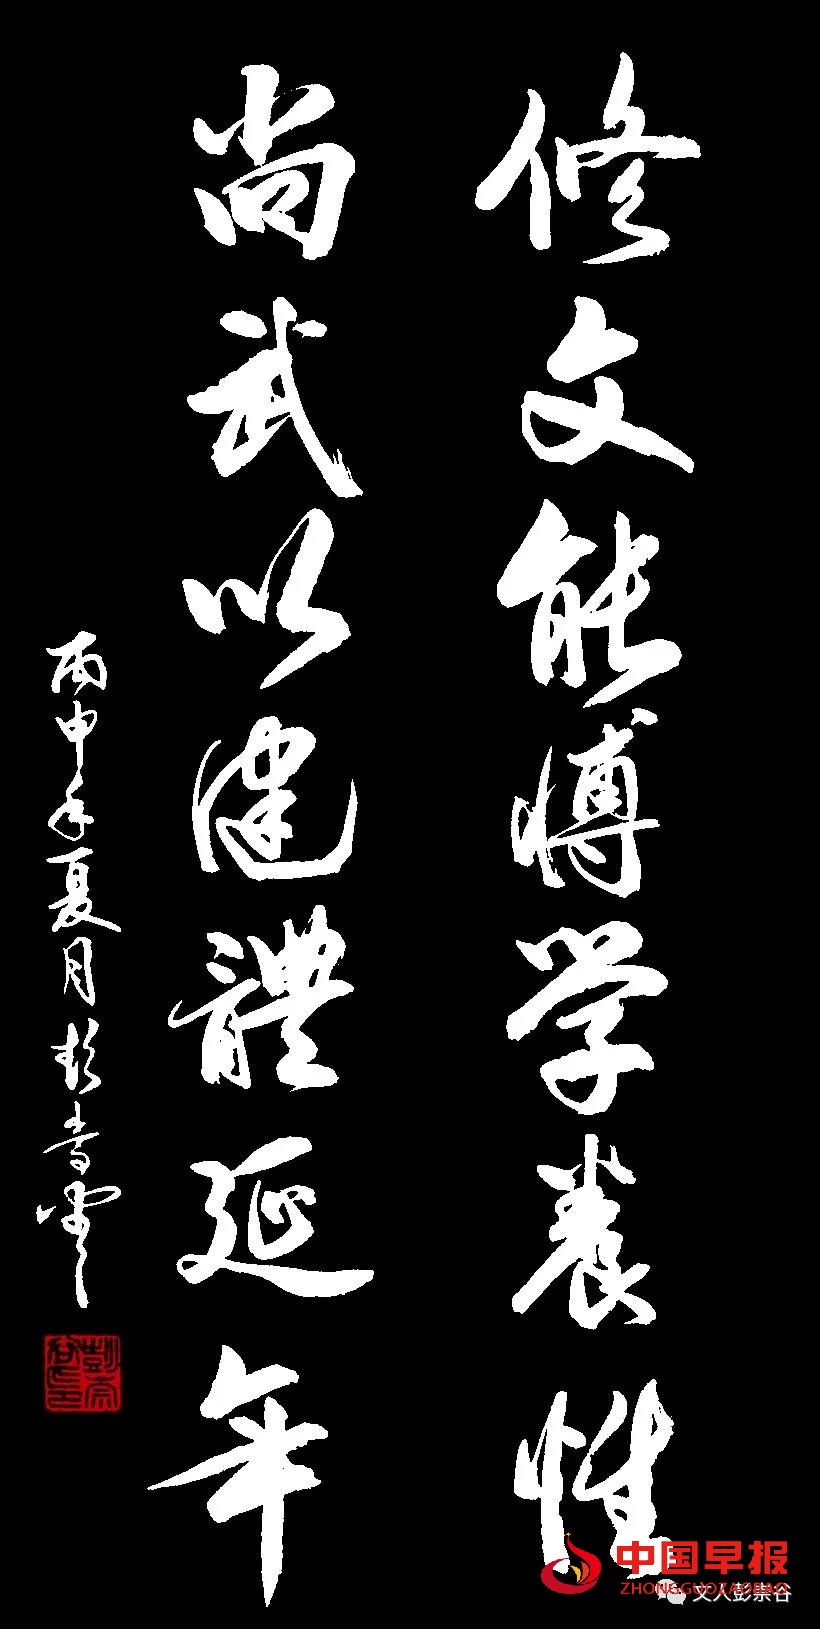 修文能博学養性
尚武以健體延年
丙申年夏月彭
中国早报
ZHONGGUOZAOBAO
文人彭崇谷